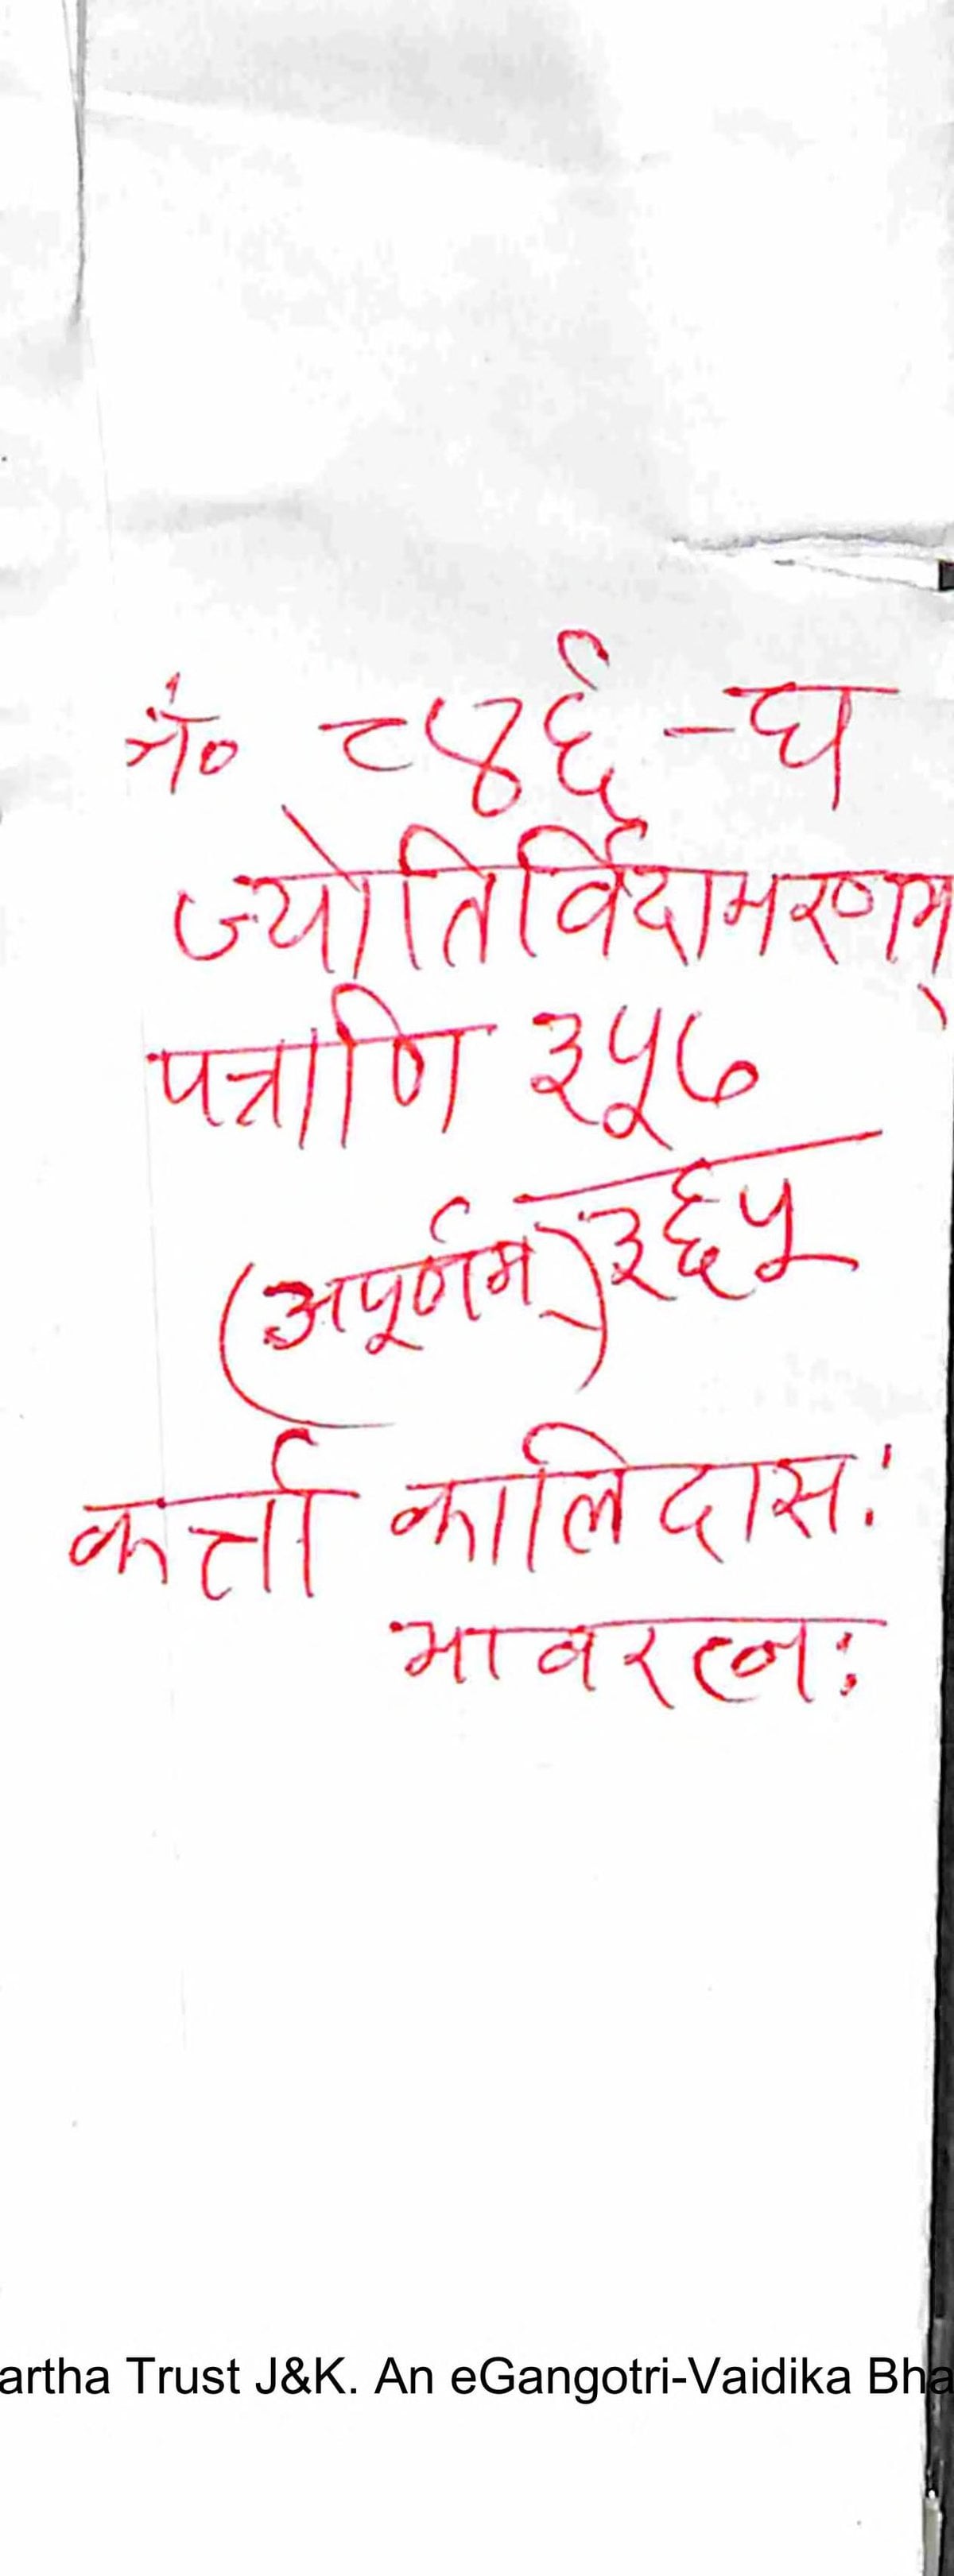 नं० ८४६ -घ
ज्योतिर्विदाभरणम्
पत्राणि ३५७
(अपूर्णम्) ३६५
कर्त्ता कालिदासः
भावरत्नः
artha Trust J&K. An eGangotri-Vaidika Bha